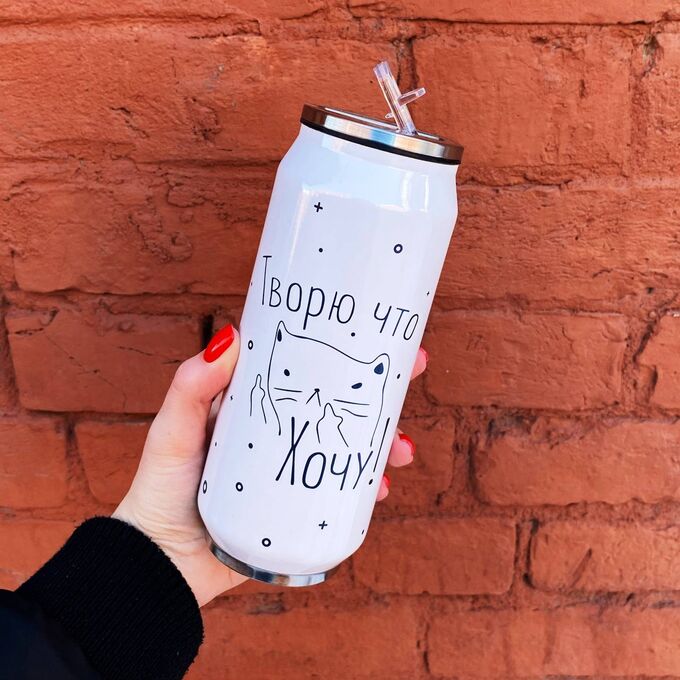 Творю что
Хочу!